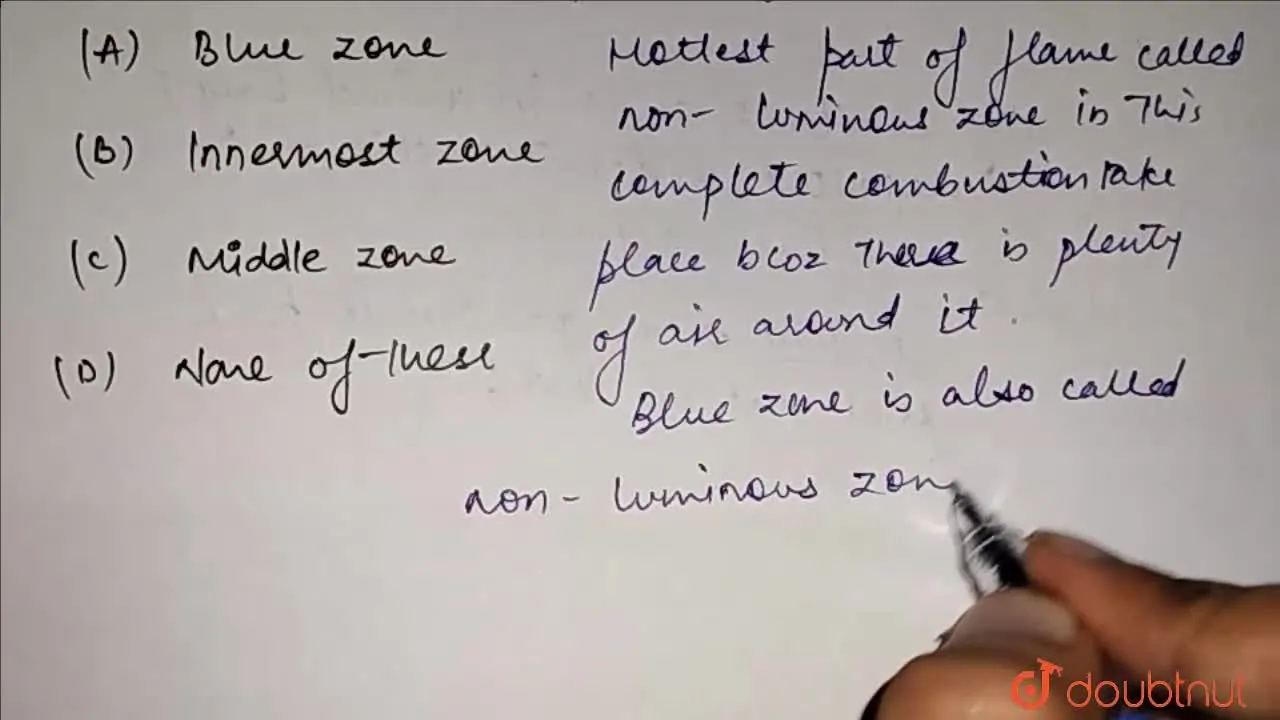 (A) Blue zone
(B) Innermost zone
(C) Middle zone
(D) None of these
Hottest part of flame called
non- luminous zone in This
complete combustion take
place bcoz There is plenty
of air around it.
Blue zone is also called
non- luminous zon
doubtnut